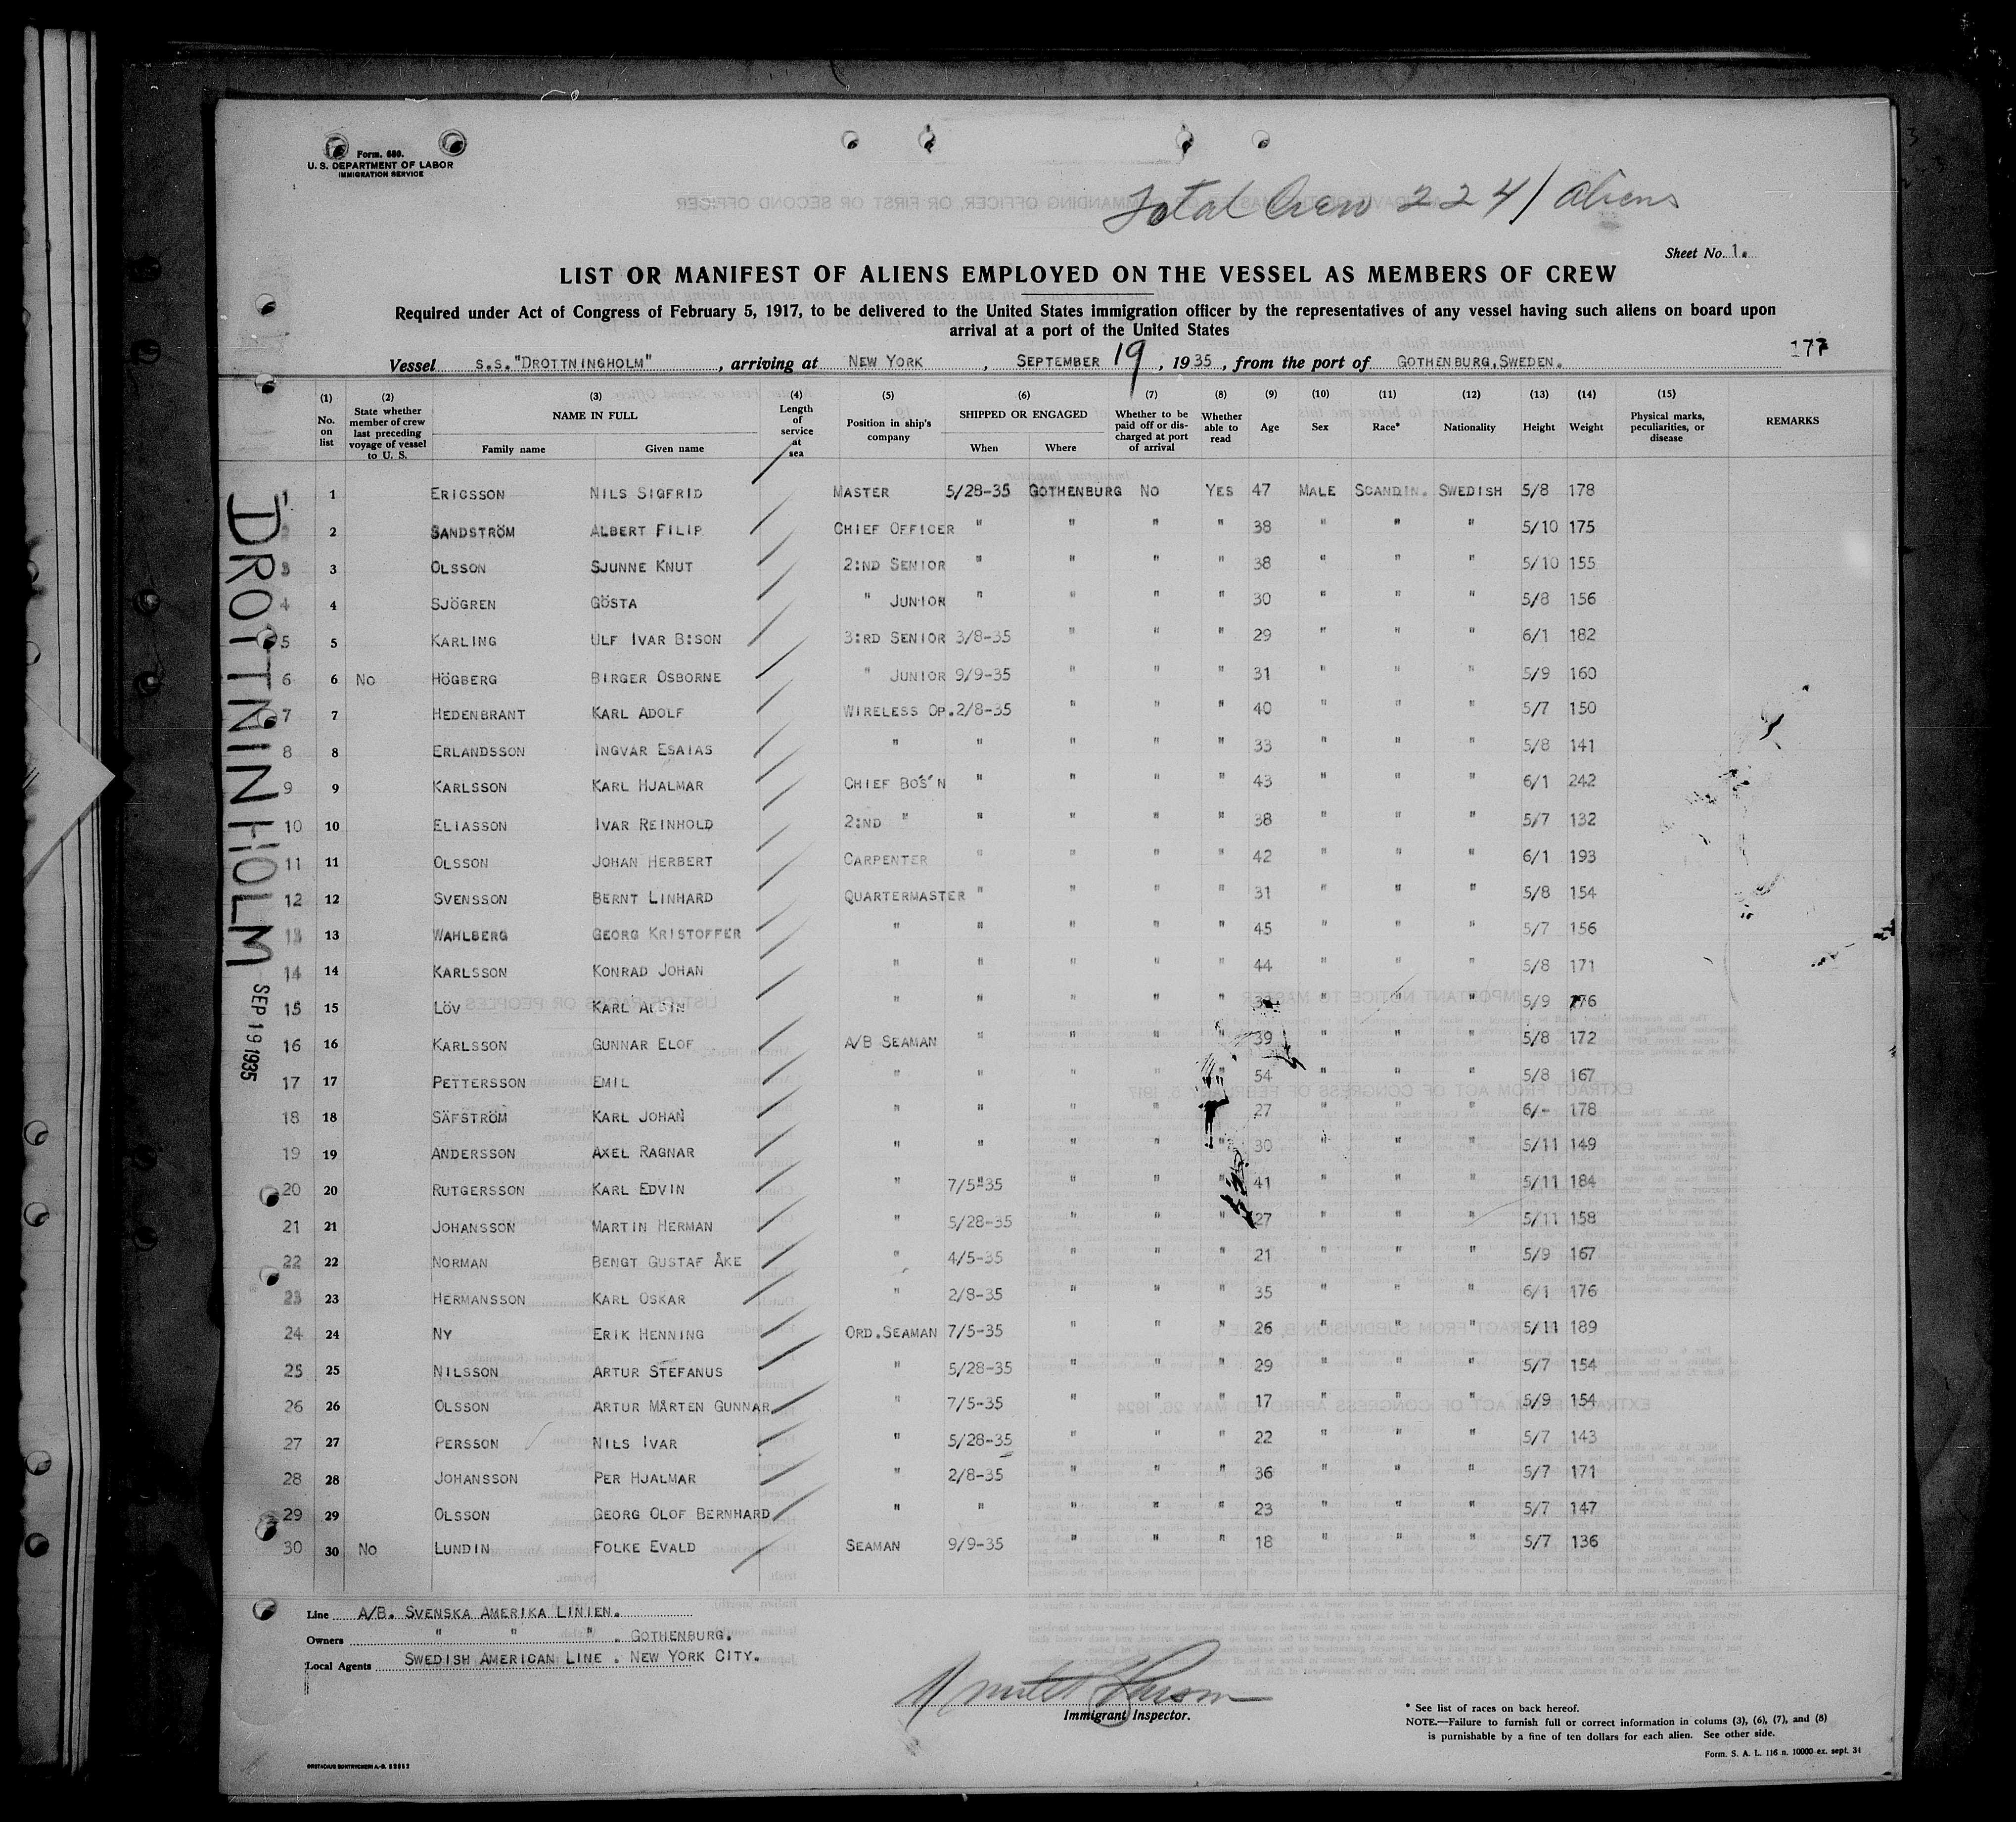 Form. 680.
U. S. DEPARTMENT OF LABOR
IMMIGRATION SERVICE
Total Crew 224 / aliens
Sheet No. 1.
LIST OR MANIFEST OF ALIENS EMPLOYED ON THE VESSEL AS MEMBERS OF CREW
Required under Act of Congress of February 5, 1917, to be delivered to the United States immigration officer by the representatives of any vessel having such aliens on board upon
arrival at a port of the United States
177
Vessel S.S. "DROTTNINGHOLM", arriving at NEW YORK, SEPTEMBER 19, 1935, from the port of GOTHENBURG, SWEDEN.
(1) No. on list (2) State whether member of crew last preceding voyage of vessel to U. S. (3) NAME IN FULL Family name Given name (4) Length of service at sea (5) Position in ship's company (6) SHIPPED OR ENGAGED When Where (7) Whether to be paid off or discharged at port of arrival (8) Whether able to read (9) Age (10) Sex (11) Race* (12) Nationality (13) Height (14) Weight (15) Physical marks, peculiarities, or disease REMARKS
1 1 ERICSSON NILS SIGFRID MASTER 5/28-35 GOTHENBURG NO YES 47 MALE SCANDIN. SWEDISH 5/8 178
2 2 SANDSTRÖM ALBERT FILIP CHIEF OFFICER " " " " 38 " " " 5/10 175
3 3 OLSSON SJUNNE KNUT 2:ND SENIOR " " " " 38 " " " 5/10 155
4 4 SJÖGREN GÖSTA " JUNIOR " " " " 30 " " " 5/8 156
5 5 KARLING ULF IVAR B:SON 3:RD SENIOR 3/8-35 " " " 29 " " " 6/1 182
6 6 NO HÖGBERG BIRGER OSBORNE " JUNIOR 9/9-35 " " " 31 " " " 5/9 160
7 7 HEDENBRANT KARL ADOLF WIRELESS OP. 2/8-35 " " " 40 " " " 5/7 150
8 8 ERLANDSSON INGVAR ESAIAS " " " " " 33 " " " 5/8 141
9 9 KARLSSON KARL HJALMAR CHIEF BOS'N " " " " 43 " " " 6/1 242
10 10 ELIASSON IVAR REINHOLD 2:ND " " " " " 38 " " " 5/7 132
11 11 OLSSON JOHAN HERBERT CARPENTER " " " " 42 " " " 6/1 193
12 12 SVENSSON BERNT LINHARD QUARTERMASTER " " " " 31 " " " 5/8 154
13 13 WAHLBERG GEORG KRISTOFFER " " " " " 45 " " " 5/7 156
14 14 KARLSSON KONRAD JOHAN " " " " " 44 " " " 5/8 171
15 15 LÖV KARL " " " " " " " " 5/9 176
16 16 KARLSSON GUNNAR ELOF A/B SEAMAN " " " " 39 " " " 5/8 172
17 17 PETTERSSON EMIL " " " " " 54 " " " 5/8 167
18 18 SÄFSTRÖM KARL JOHAN " " " " " 27 " " " 6/- 178
19 19 ANDERSSON AXEL RAGNAR " " " " " 30 " " " 5/11 149
20 20 RUTGERSSON KARL EDVIN " 7/5-35 " " " 41 " " " 5/11 184
21 21 JOHANSSON MARTIN HERMAN " 5/28-35 " " " 27 " " " 5/11 158
22 22 NORMAN BENGT GUSTAF ÅKE " 4/5-35 " " " 21 " " " 5/9 167
23 23 HERMANSSON KARL OSKAR " 2/8-35 " " " 35 " " " 6/1 176
24 24 NY ERIK HENNING ORD. SEAMAN 7/5-35 " " " 26 " " " 5/11 189
25 25 NILSSON ARTUR STEFANUS " 5/28-35 " " " 29 " " " 5/7 154
26 26 OLSSON ARTUR MÅRTEN GUNNAR " 7/5-35 " " " 17 " " " 5/9 154
27 27 PERSSON NILS IVAR " 5/28-35 " " " 22 " " " 5/7 143
28 28 JOHANSSON PER HJALMAR " 2/8-35 " " " 36 " " " 5/7 171
29 29 OLSSON GEORG OLOF BERNHARD " " " " " 23 " " " 5/7 147
30 30 NO LUNDIN FOLKE EVALD SEAMAN 9/9-35 " " " 18 " " " 5/7 136
DROTTNINHOLM
SEP 19 1935
Line A/B. SVENSKA AMERIKA LINIEN.
Owners " " " . GOTHENBURG.
Local Agents SWEDISH AMERICAN LINE . NEW YORK CITY.
Immigrant Inspector.
* See list of races on back hereof.
NOTE.—Failure to furnish full or correct information in colums (3), (6), (7), and (8)
is purnishable by a fine of ten dollars for each alien. See other side.
Form. S. A. L. 116 n. 10000 ex. sept. 34